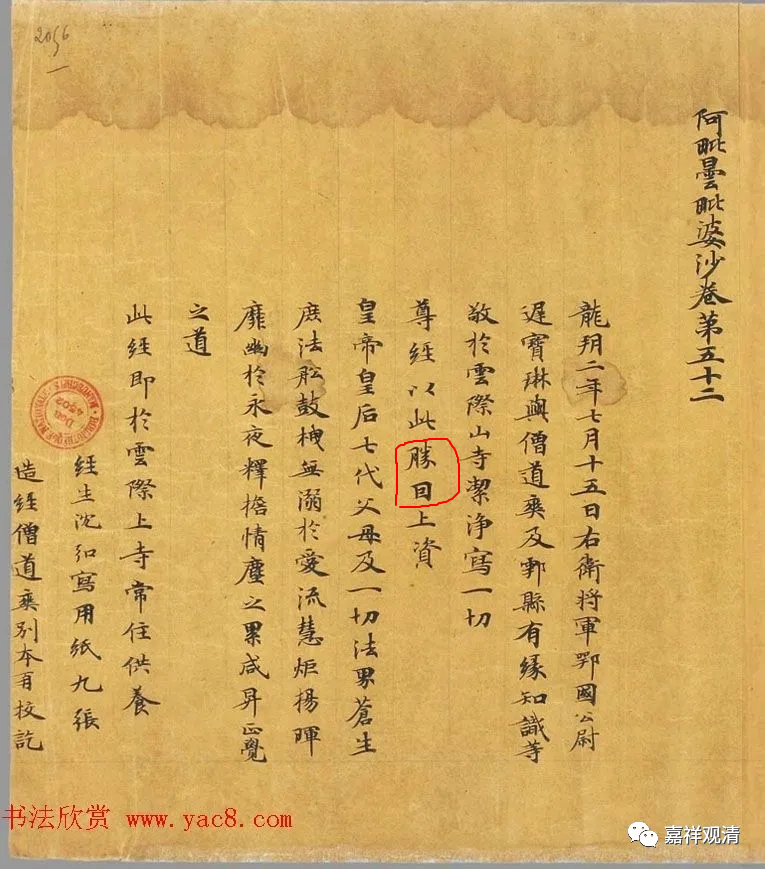 2056
阿毗曇毗婆沙卷第五十二
龍朔二年七月十五日右衛將軍鄂國公尉
遲寶琳與僧道爽及鄠縣有緣知識等
敬於雲際山寺潔淨寫一切
尊經以此勝囙上資
皇帝皇后七代父母及一切法界蒼生
庶法舩鼓栧無溺於愛流慧炬揚暉
靡幽於永夜釋擔情塵之累咸昇正覺
之道
此經即於雲際上寺常住供養
經生沈弘寫用紙九張
造經僧道爽別本再校訖
DON
4502
书法欣赏 www.yac8.com
嘉祥观清